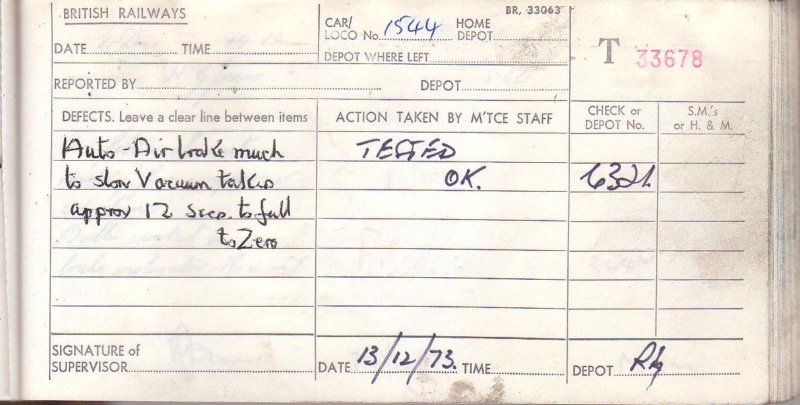 BRITISH RAILWAYS
BR, 33063
CAR/ LOCO No. 1544 HOME DEPOT
DATE TIME
DEPOT WHERE LEFT
T 33678
REPORTED BY DEPOT
DEFECTS. Leave a clear line between items
ACTION TAKEN BY M'TCE STAFF
CHECK or DEPOT No.
S.M.'s or H. & M.
Auto-Air brake much
to slow Vacuum takes
approx 12 secs. to fall
to Zero
TESTED
OK.
SIGNATURE of SUPERVISOR
DATE 13/12/73. TIME
DEPOT